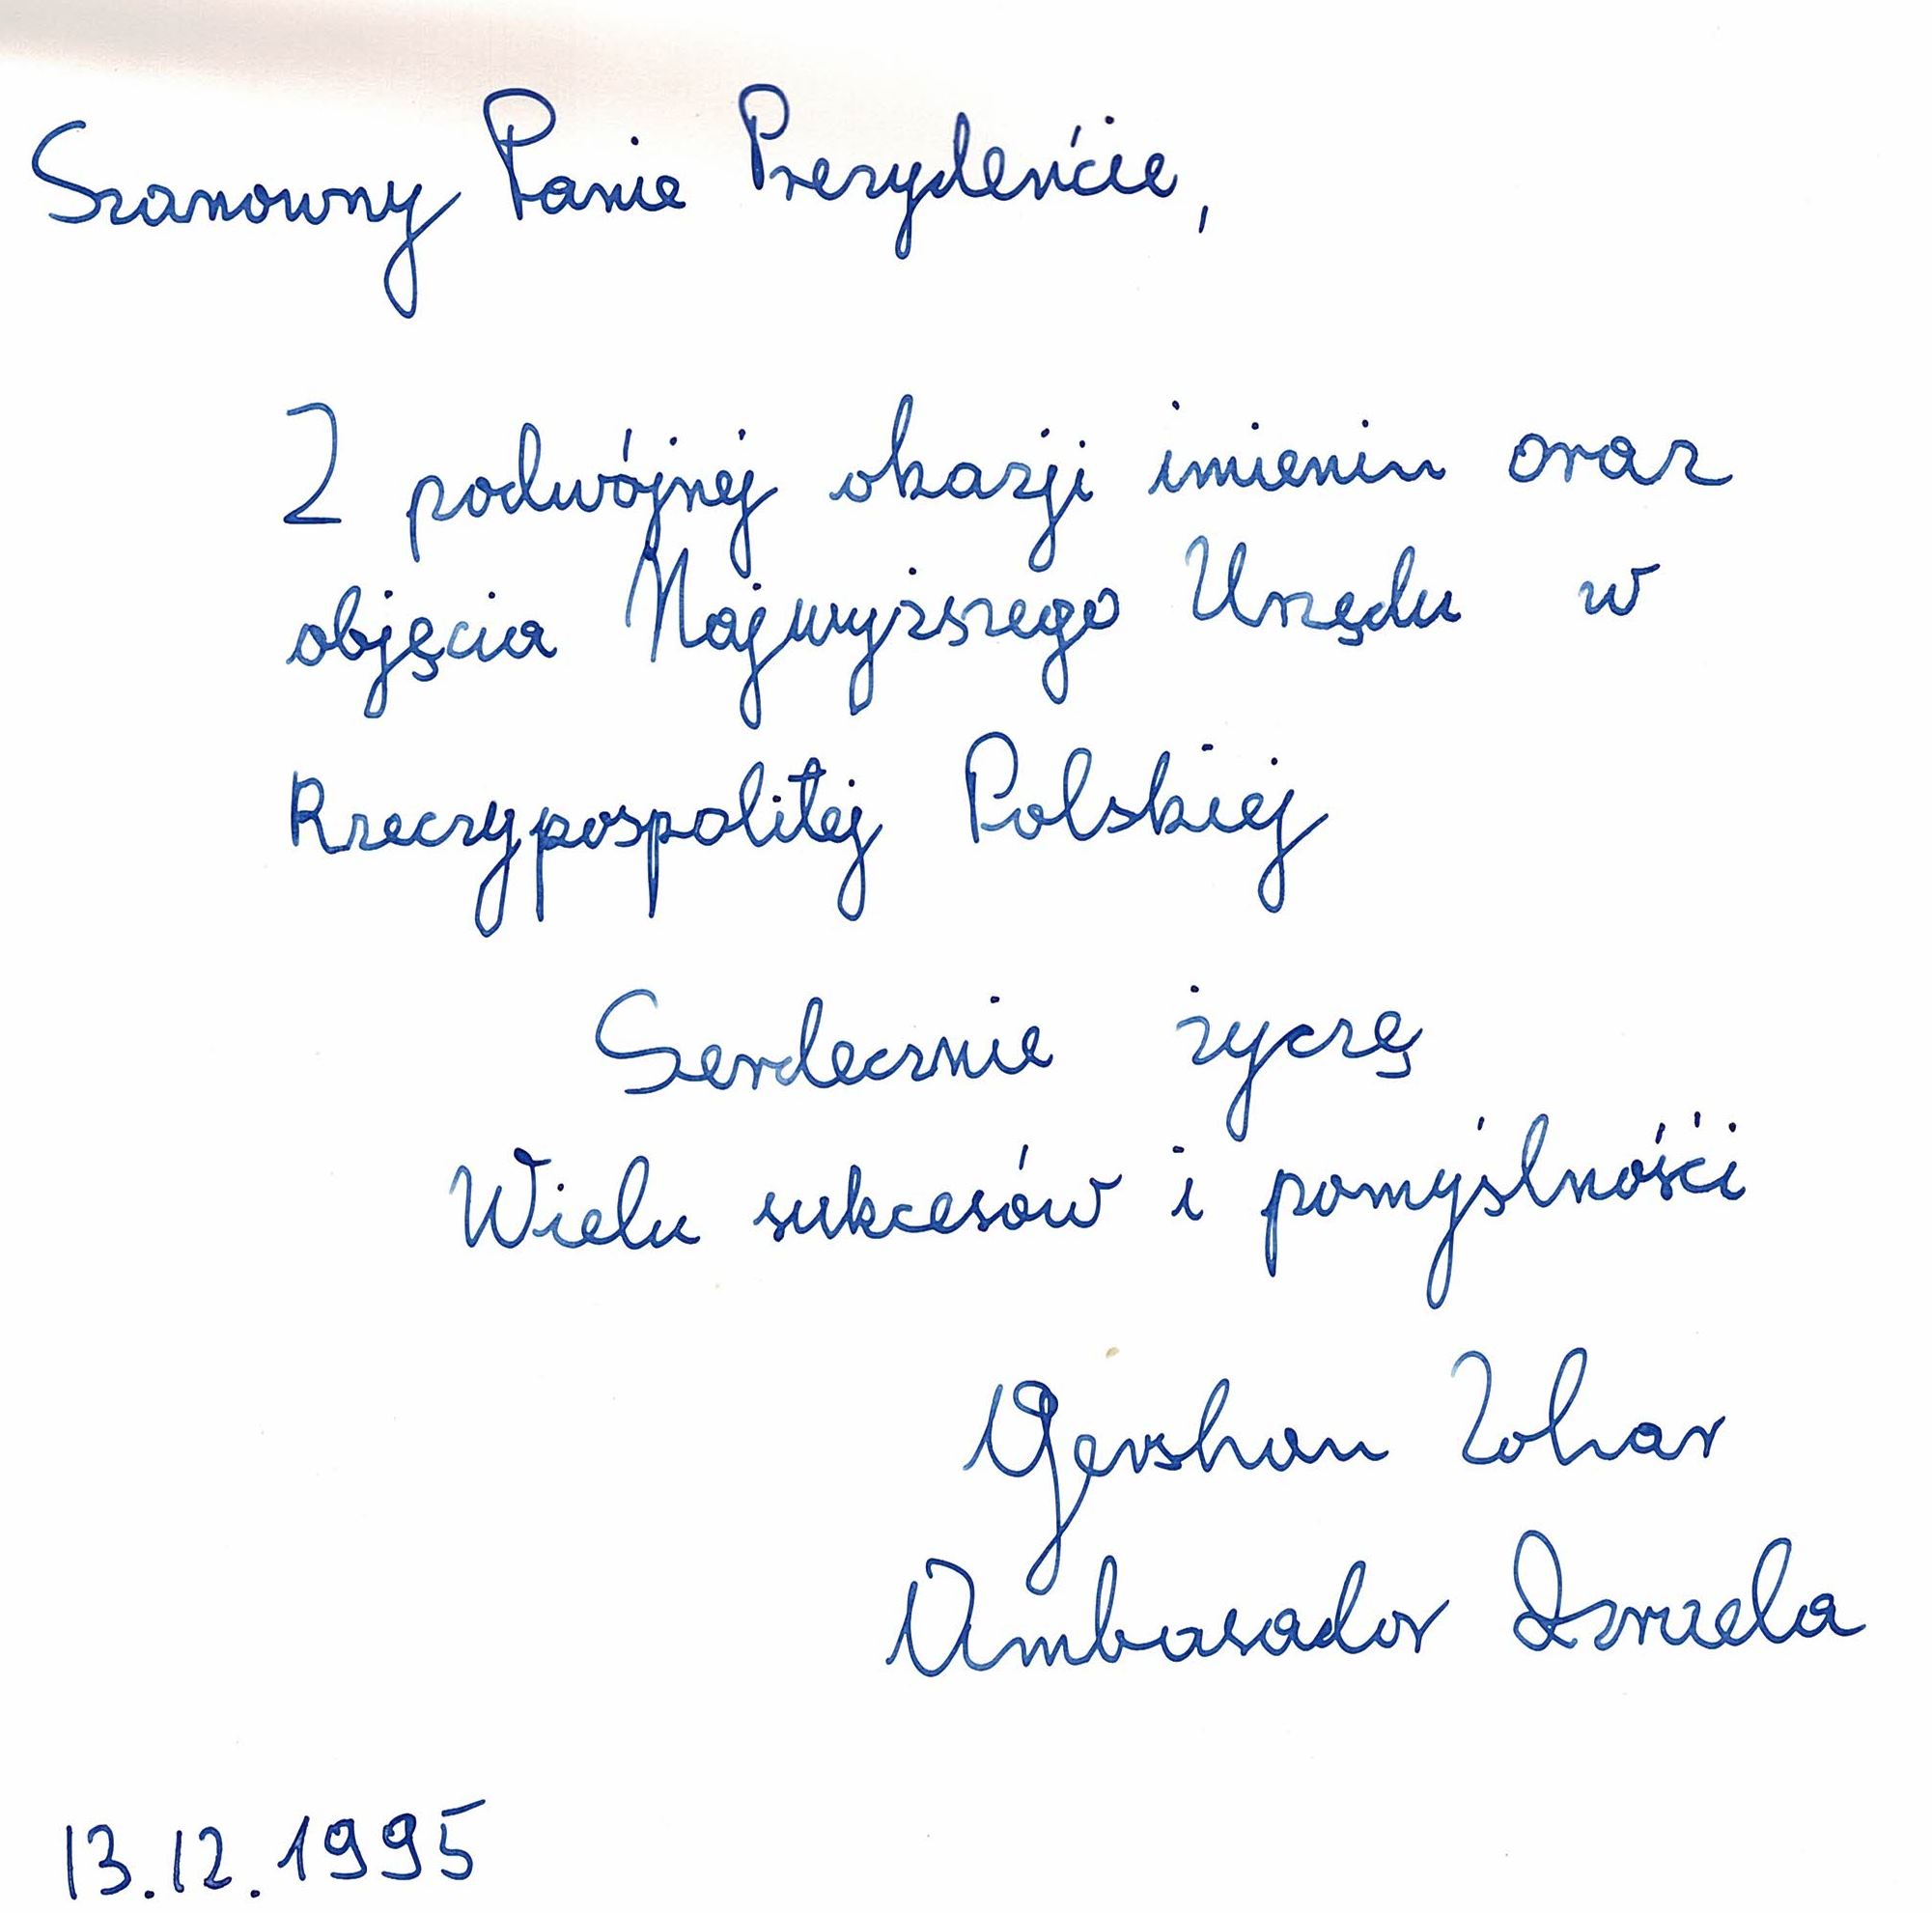 Szanowny Panie Prezydeńcie,
Z podwójnej okazji imienin oraz
objęcia Najwyższego Urzędu w
Rzeczypospolitej Polskiej
Serdecznie życzę
Wielu sukcesów i pomyślnośći
Gershon Zohar
Ambasador Izraela
13.12.1995